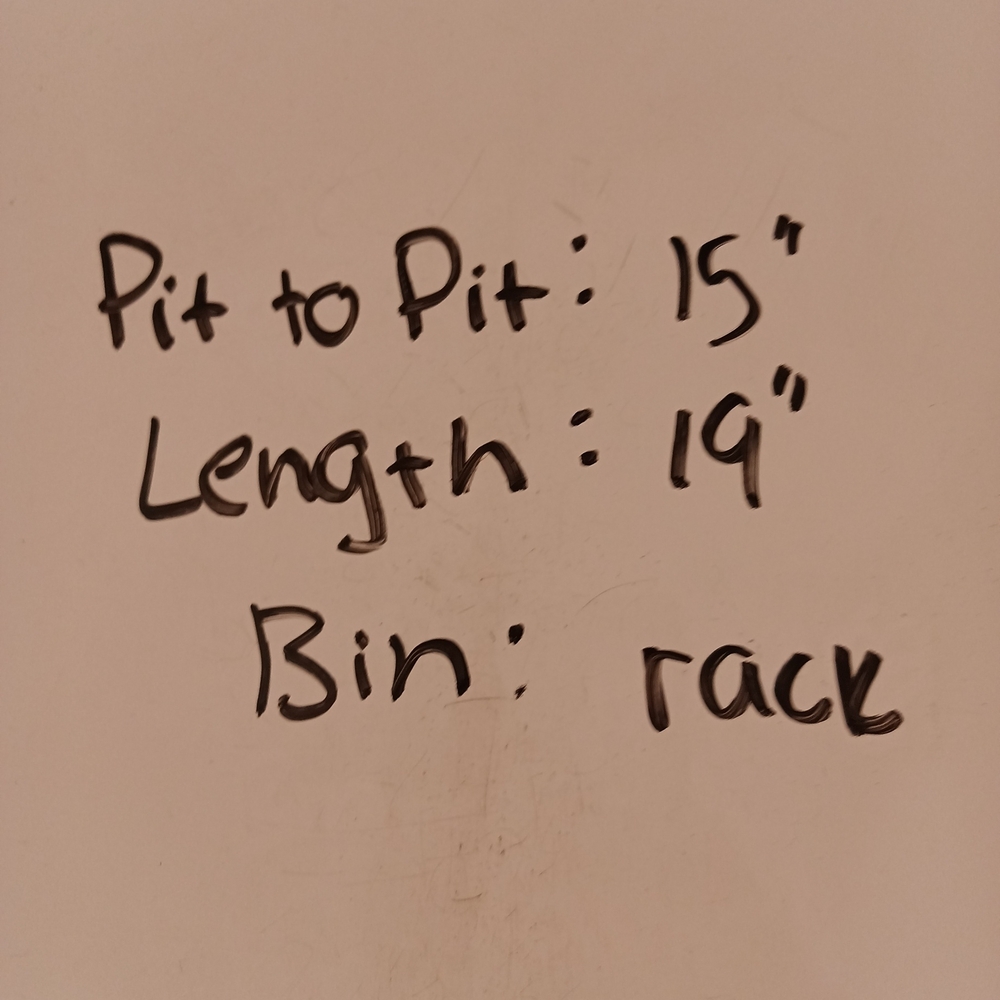 Pit to Pit: 15"
Length: 19"
Bin: rack